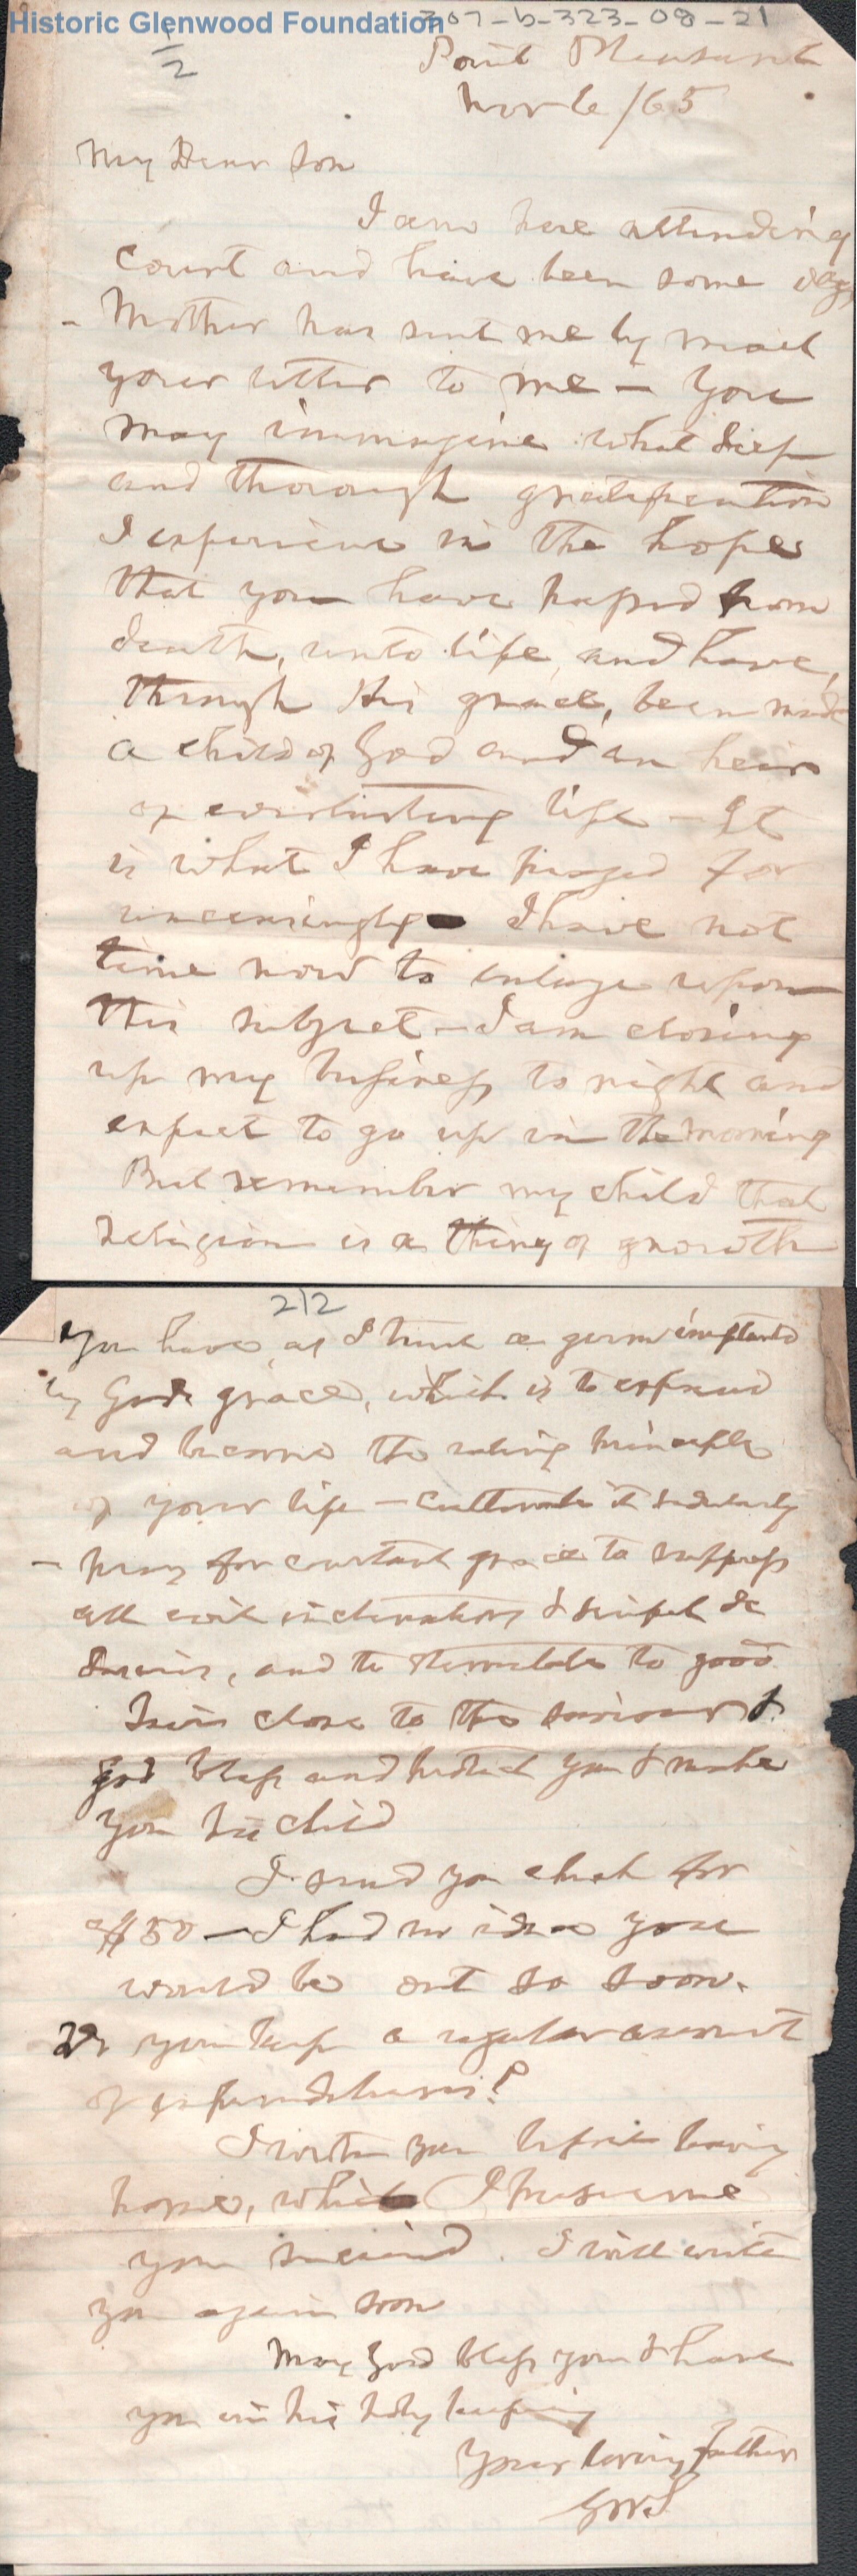 Historic Glenwood Foundation
307-b-323-08-21
1/2
Point Pleasant
Nov 6/65
My Dear Son
I am here attending
court and have been some days
- Mother has sent me by mail
your letter to me - You
may immagine what deep
and thorough gratification
I experience in the hope
that you have passed from
death, unto life, and have,
through His grace, been made
a child of God and an heir
of everlasting life - It
is what I have prayed for
unceasingly - I have not
time now to enlarge upon
this subject - I am closing
up my business to night and
expect to go up in the morning
But remember my child that
religion is a thing of growth
2/2
You have, as I trust a germ implanted
by Gods grace, which is to expand
and become the ruling principle
of your life - cultivate it sedulously
- pray for constant grace to suppress
all evil inclinations & sinful de
desires, and to stimulate to good
Live close to the Saviour &
God bless and protect you & make
you his child
I send you check for
$50 - I had no idea you
would be out so soon.
Do you keep a regular account
of expenditures?
I wrote you before leaving
home, which I presume
you received. I will write
you again soon
May God bless you & have
you in his holy keeping
Your loving father
GWS